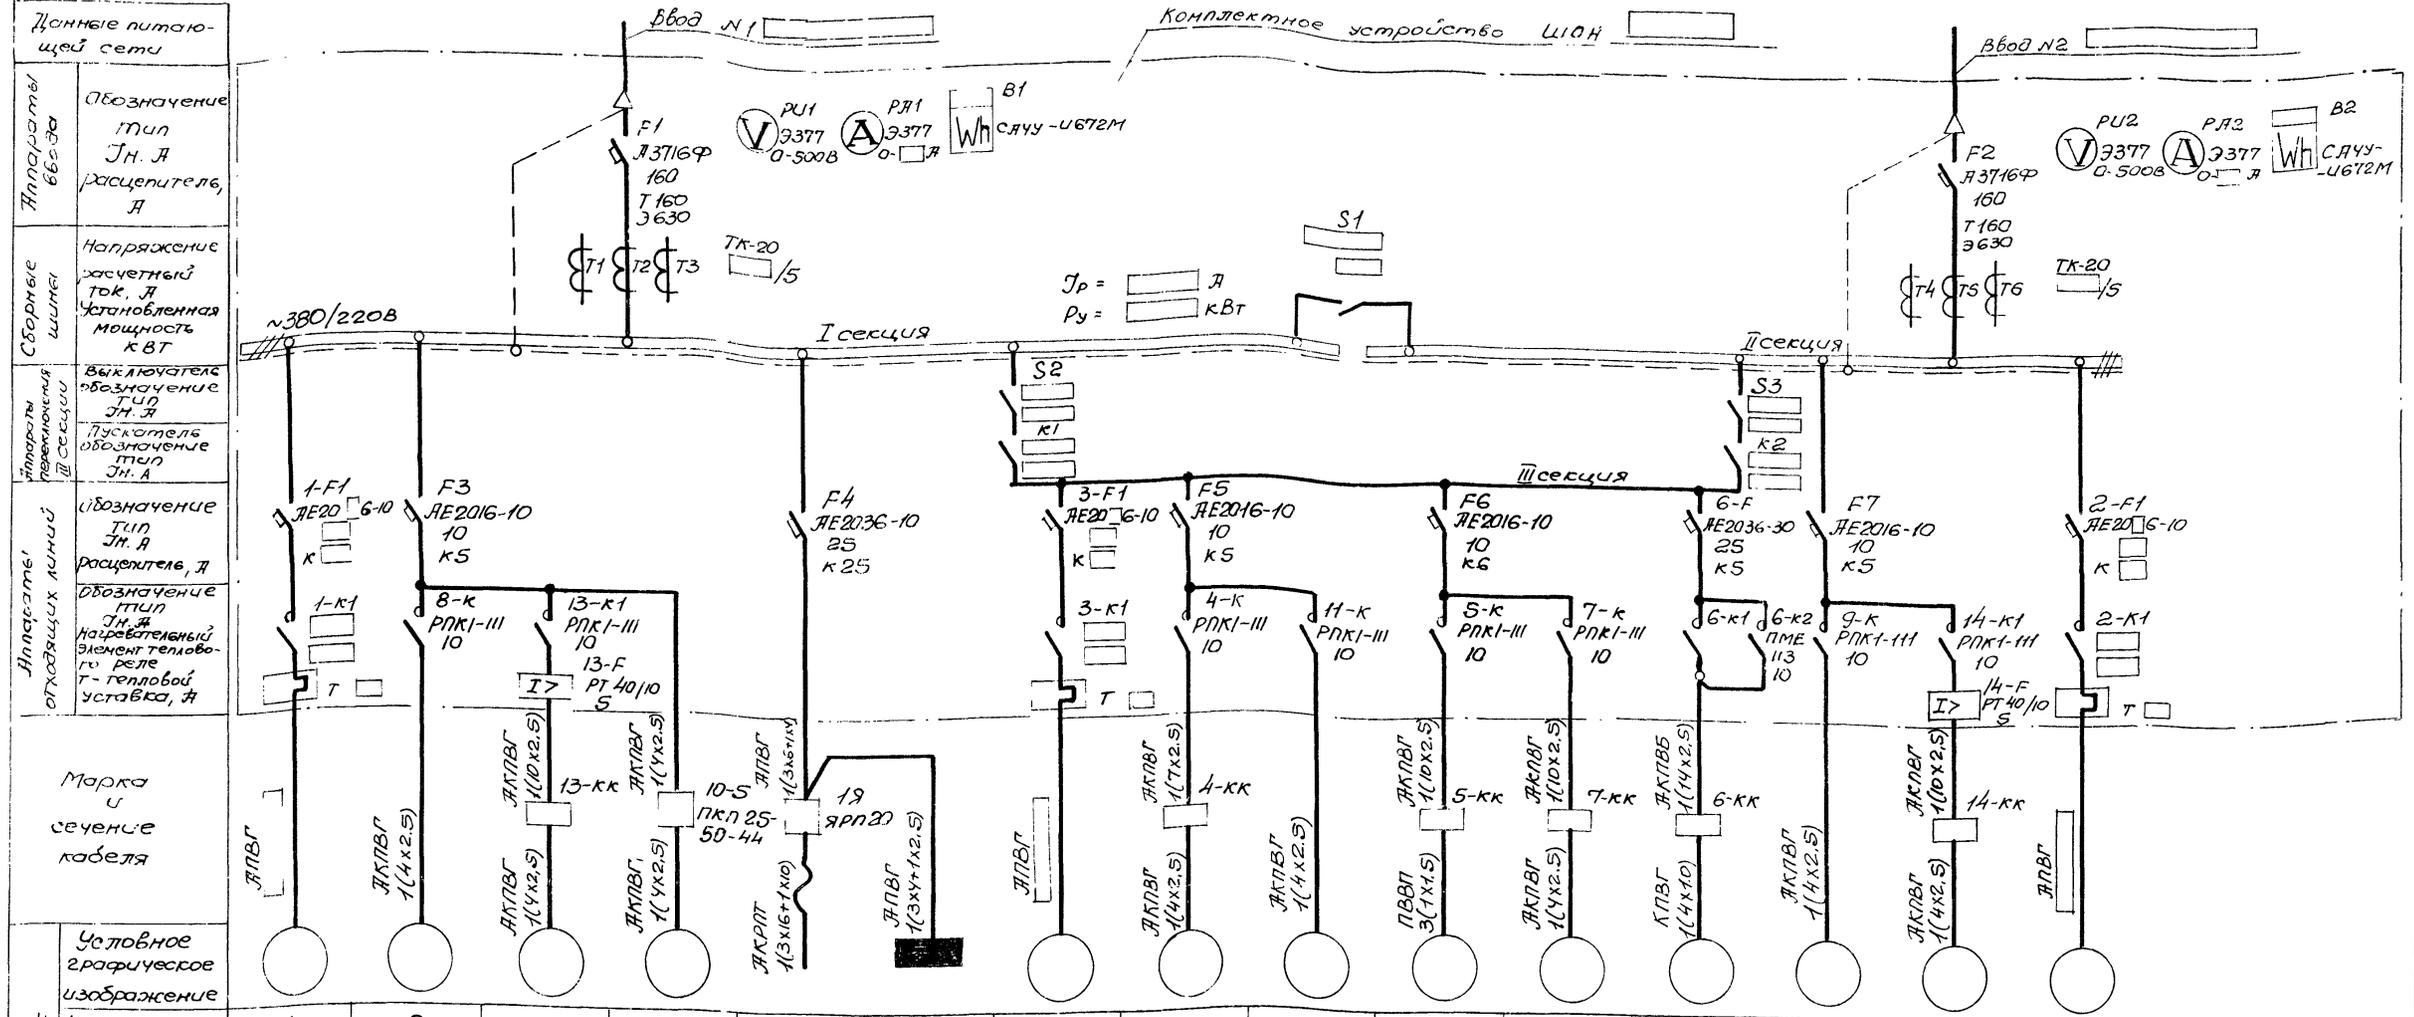 Данные питаю-
щей сети
Аппараты
ввода
Обозначение
тип
Jн. А
расцепитель,
А
Сборные
шины
Напряжение
расчетный
ток, А
Установленная
мощность
кВт
Аппараты
переключения
III секции
Выключатель
обозначение
тип
Jн. А
Пускатель
обозначение
тип
Jн. А
Аппараты
отходящих линий
Обозначение
тип
Jн. А
расцепитель, А
Обозначение
тип
Jн. А
Нагревательный
элемент теплово-
го реле
Т-тепловой
уставка, А
Марка
и
сечение
кабеля
Условное
графическое
изображение
Ввод N1
Комплектное устройство ШОН
Ввод N2
F1
А3716Ф
160
Т160
Э630
V
PU1
Э377
0-500В
A
PA1
Э377
0- А
B1
Wh
САЧУ-И672М
T1
T2
T3
ТК-20
/5
S1
Jр = А
Ру = кВт
F2
А3716Ф
160
Т160
Э630
V
PU2
Э377
0-500В
A
PA2
Э377
0- А
B2
Wh
САЧУ-
-И672М
T4
T5
T6
ТК-20
/5
~380/220В
I секция
II секция
S2
К1
S3
К2
III секция
1-F1
АЕ20 6-10
К
1-К1
Т
F3
АЕ2016-10
10
К5
8-К
РПК1-111
10
13-К1
РПК1-111
10
13-F
I>
РТ40/10
5
F4
АЕ2036-10
25
К25
3-F1
АЕ20 6-10
К
3-К1
Т
F5
АЕ2016-10
10
К5
4-К
РПК1-111
10
11-К
РПК1-111
10
F6
АЕ2016-10
10
К6
5-К
РПК1-111
10
7-К
РПК1-111
10
6-F
АЕ2036-30
25
К5
6-К1
6-К2
ПМЕ
113
10
F7
АЕ2016-10
10
К5
9-К
РПК1-111
10
14-К1
РПК1-111
10
14-F
I>
РТ40/10
5
2-F1
АЕ20 6-10
К
2-К1
Т
АПВГ
АКПВГ
1(4х2.5)
АКПВГ
1(10х2.5)
13-КК
АКПВГ
1(4х2,5)
АКПВГ
1(4х2.5)
10-S
ПКП 25-
50-44
АКПВГ
1(4х2,5)
АПВГ
1Я
ЯРП20
АКРПТ
1(3х16+1х10)
АПВГ
1(3х4+1х2.5)
АПВГ
АКПВГ
1(7х2.5)
4-КК
АКПВГ
1(4х2,5)
АКПВГ
1(4х2.5)
АКПВГ
1(10х2.5)
5-КК
ПВВП
3(1х1.5)
АКПВГ
1(10х2,5)
7-КК
АКПВГ
1(4х2.5)
АКПВБ
1(14х2,5)
6-КК
КПВГ
1(4х1.0)
АКПВГ
1(4х2.5)
АКПВГ
1(10х2,5)
14-КК
АКПВГ
1(4х2,5)
АПВГ